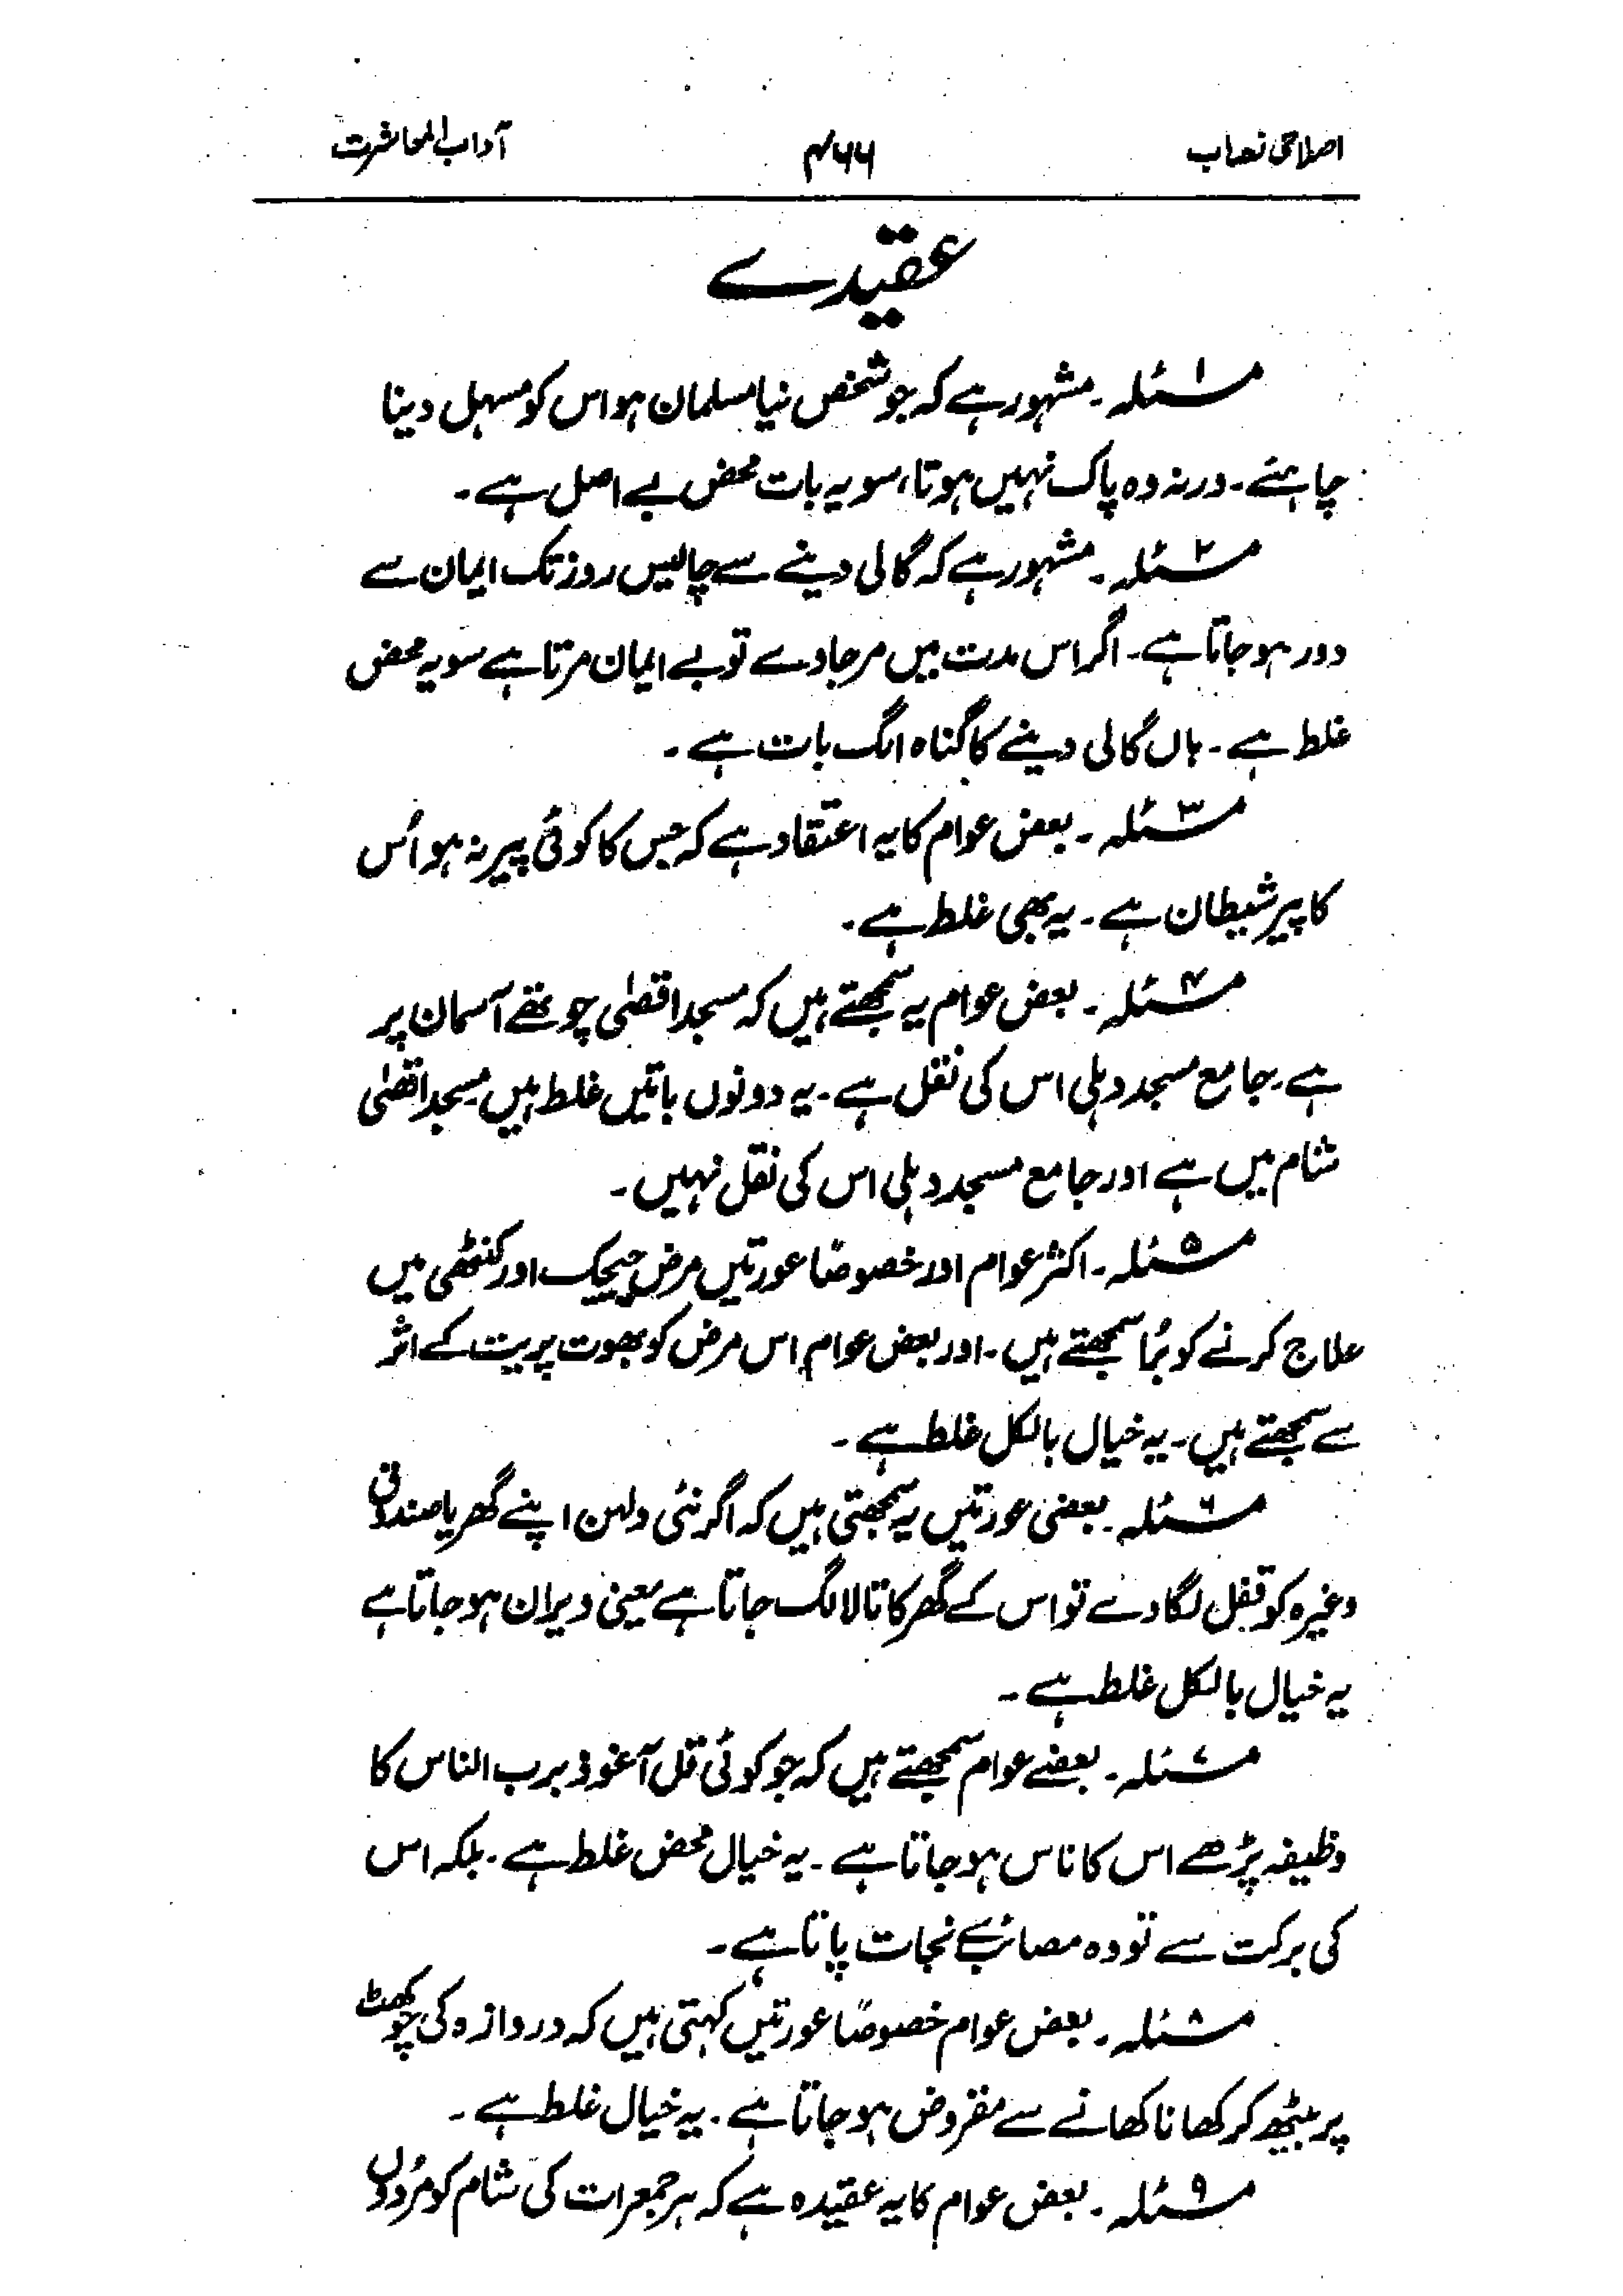 اصلاحی نصاب ۴۶۶ آداب المعاشرت
عقیدے
مسئلہ ۱۔ مشہور ہے کہ جو شخص نیا مسلمان ہو اس کو مسہل دینا
چاہئے۔ ورنہ وہ پاک نہیں ہوتا، سو یہ بات محض بے اصل ہے۔
مسئلہ ۲۔ مشہور ہے کہ گالی دینے سے چالیس روز تک ایمان سے
دور ہو جاتا ہے۔ اگر اس مدت میں مرجاوے تو بے ایمان مرتا ہے سو یہ محض
غلط ہے۔ ہاں گالی دینے کا گناہ الگ بات ہے۔
مسئلہ ۳۔ بعض عوام کا یہ اعتقاد ہے کہ جس کا کوئی پیر نہ ہو اُس
کا پیر شیطان ہے۔ یہ بھی غلط ہے۔
مسئلہ ۴۔ بعض عوام یہ سمجھتے ہیں کہ مسجد اقصٰی چوتھے آسمان پر
ہے۔ جامع مسجد دہلی اس کی نقل ہے۔ یہ دونوں باتیں غلط ہیں مسجد اقصٰی
شام میں ہے اور جامع مسجد دہلی اس کی نقل نہیں۔
مسئلہ ۵۔ اکثر عوام اور خصوصًا عورتیں مرض چیچک اور کنٹھی میں
علاج کرنے کو بُرا سمجھتے ہیں۔ اور بعض عوام اس مرض کو بھوت پریت کے اثر
سے سمجھتے ہیں۔ یہ خیال بالکل غلط ہے۔
مسئلہ ۶۔ بعضی عورتیں یہ سمجھتی ہیں کہ اگر نئی دلہن اپنے گھر یا صندوق
وغیرہ کو قفل لگا دے تو اس کے گھر کا تالا لگ جاتا ہے یعنی ویران ہو جاتا ہے
یہ خیال بالکل غلط ہے۔
مسئلہ ۷۔ بعضے عوام سمجھتے ہیں کہ جو کوئی قل آعوذ برب الناس کا
وظیفہ پڑھے اس کا ناس ہو جاتا ہے۔ یہ خیال محض غلط ہے۔ بلکہ اس
کی برکت سے تو وہ مصائب سے نجات پاتا ہے۔
مسئلہ ۸۔ بعض عوام خصوصًا عورتیں کہتی ہیں کہ دروازہ کی چوکھٹ
پر بیٹھ کر کھانا کھانے سے مقروض ہو جاتا ہے۔ یہ خیال غلط ہے۔
مسئلہ ۹۔ بعض عوام کا یہ عقیدہ ہے کہ ہر جمعرات کی شام کو مُردوں